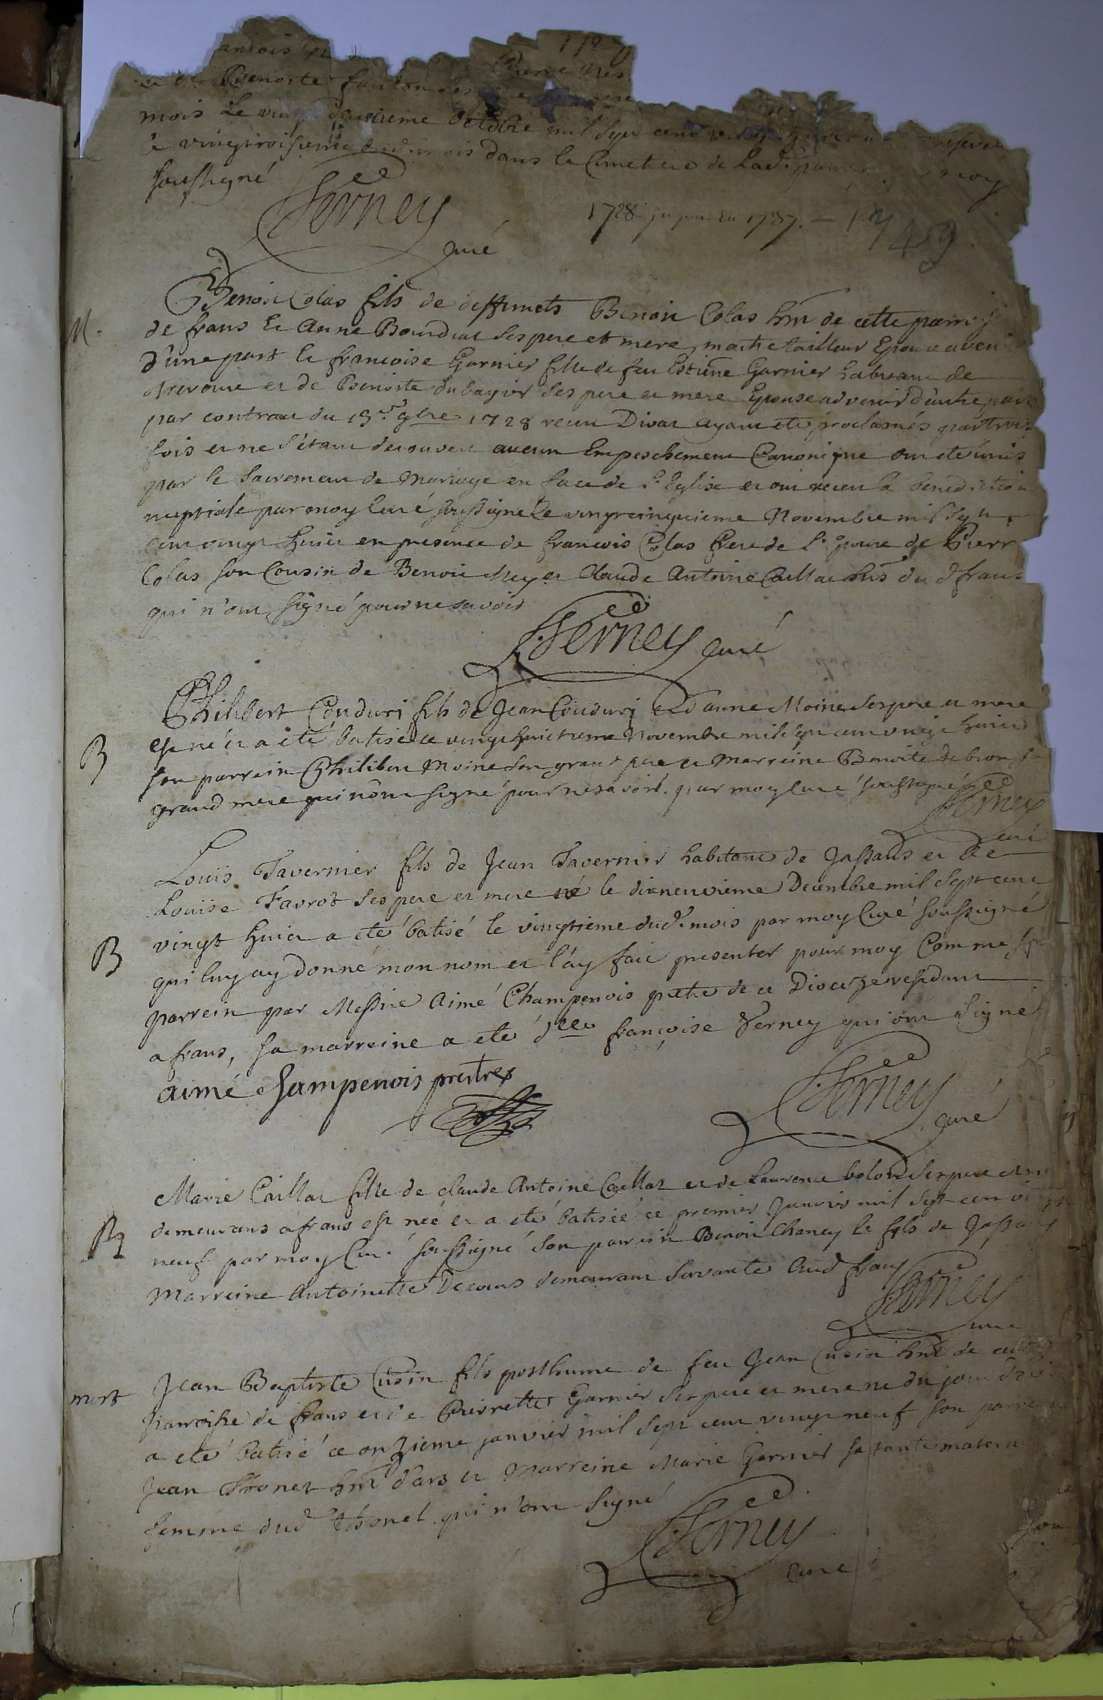 mois Le vingt deuxieme octobre mil sept cent
vingtroisieme dudt mois dans le Cimetiere de Lad. paroisse moy
soussigné
LVerney
curé
1728 jusqu'en 1737. — 1749
M.
Benoit Colas fils de deffunets Benoit Colas hnt de cette parroisse
de frans et Anne Bourdin ses pere et mere, maitre tailleur Epoux avenir
d'une part et francoise Garnier fille de feu Estiene Garnier habitant de
et de Benoite dubagier ses pere et mere Epouse advenir d'autre part
par contract du 13e 9bre 1728 receu Divat ayant eté proclamés par trois
fois et ne s'étant decouvert aucun Empeschement Canonique ont eté unis
par le sacrement de Mariage en face de Ste Eglise et ont receu la benediction
nuptiale par moy Curé soussigné Le vingtcinquieme Novembre mil sept
cent vingt huict en presence de francois Colas frere de l'epoux de Pierre
Colas son Cousin de Benoit Mey et Claude Antoine Caillat hnts du d frans
qui n'ont signé pour ne savoir
LVerney curé
B
Philibert Couduri fils de Jean Couduri et d'anne Moine ses pere et mere
est né et a eté batisé le vingt huictieme Novembre mil sept cent vingt huict
son parrein Philibert Moine son grand pere et marreine Benoite
grand mere qui n'ont signé pour ne savoir. par moy Curé soussigné
LVerney
curé
B
Louis Tavernier fils de Jean Tavernier habitant de Jassans et de
Louise Favrot ses pere et mere né le dixneuvieme Decembre mil sept cent
vingt huict a eté batisé le vingtieme dud. mois par moy Curé soussigné
qui luy ay donné mon nom et l'ay fait presenter pour moy Comme
parrein par Messire Aimé Champenois prêtre de ce Dioceze residant
a frans, sa marreine a eté dlle françoise Verney qui ont signé
aimé Champenois prestre
LVerney
curé
B
Marie Caillat fille de claude Antoine Caillat et de Laurence bolon ses pere et mere
demeurans a frans est née et a eté batisée ce premier Janvier mil sept cent vingt
neuf par moy Curé soussigné son parrein Benoit Chaney le fils de Jassans
Marreine Antoinette Decours demeurant servante aud frans
LVerney
curé
mort
Jean Baptiste Cusin fils posthume de feu Jean Cusin hnt de cette
Parroisse de frans et de Pierrette Garnier ses pere et mere né du jour d'hier
a eté batisé ce onzieme janvier mil sept cent vingt neuf son parrein
Jean Thonet hnt d'ars et Marreine Marie Garnier sa tante maternelle
femme dud Thonet qui n'ont signé
LVerney
Curé